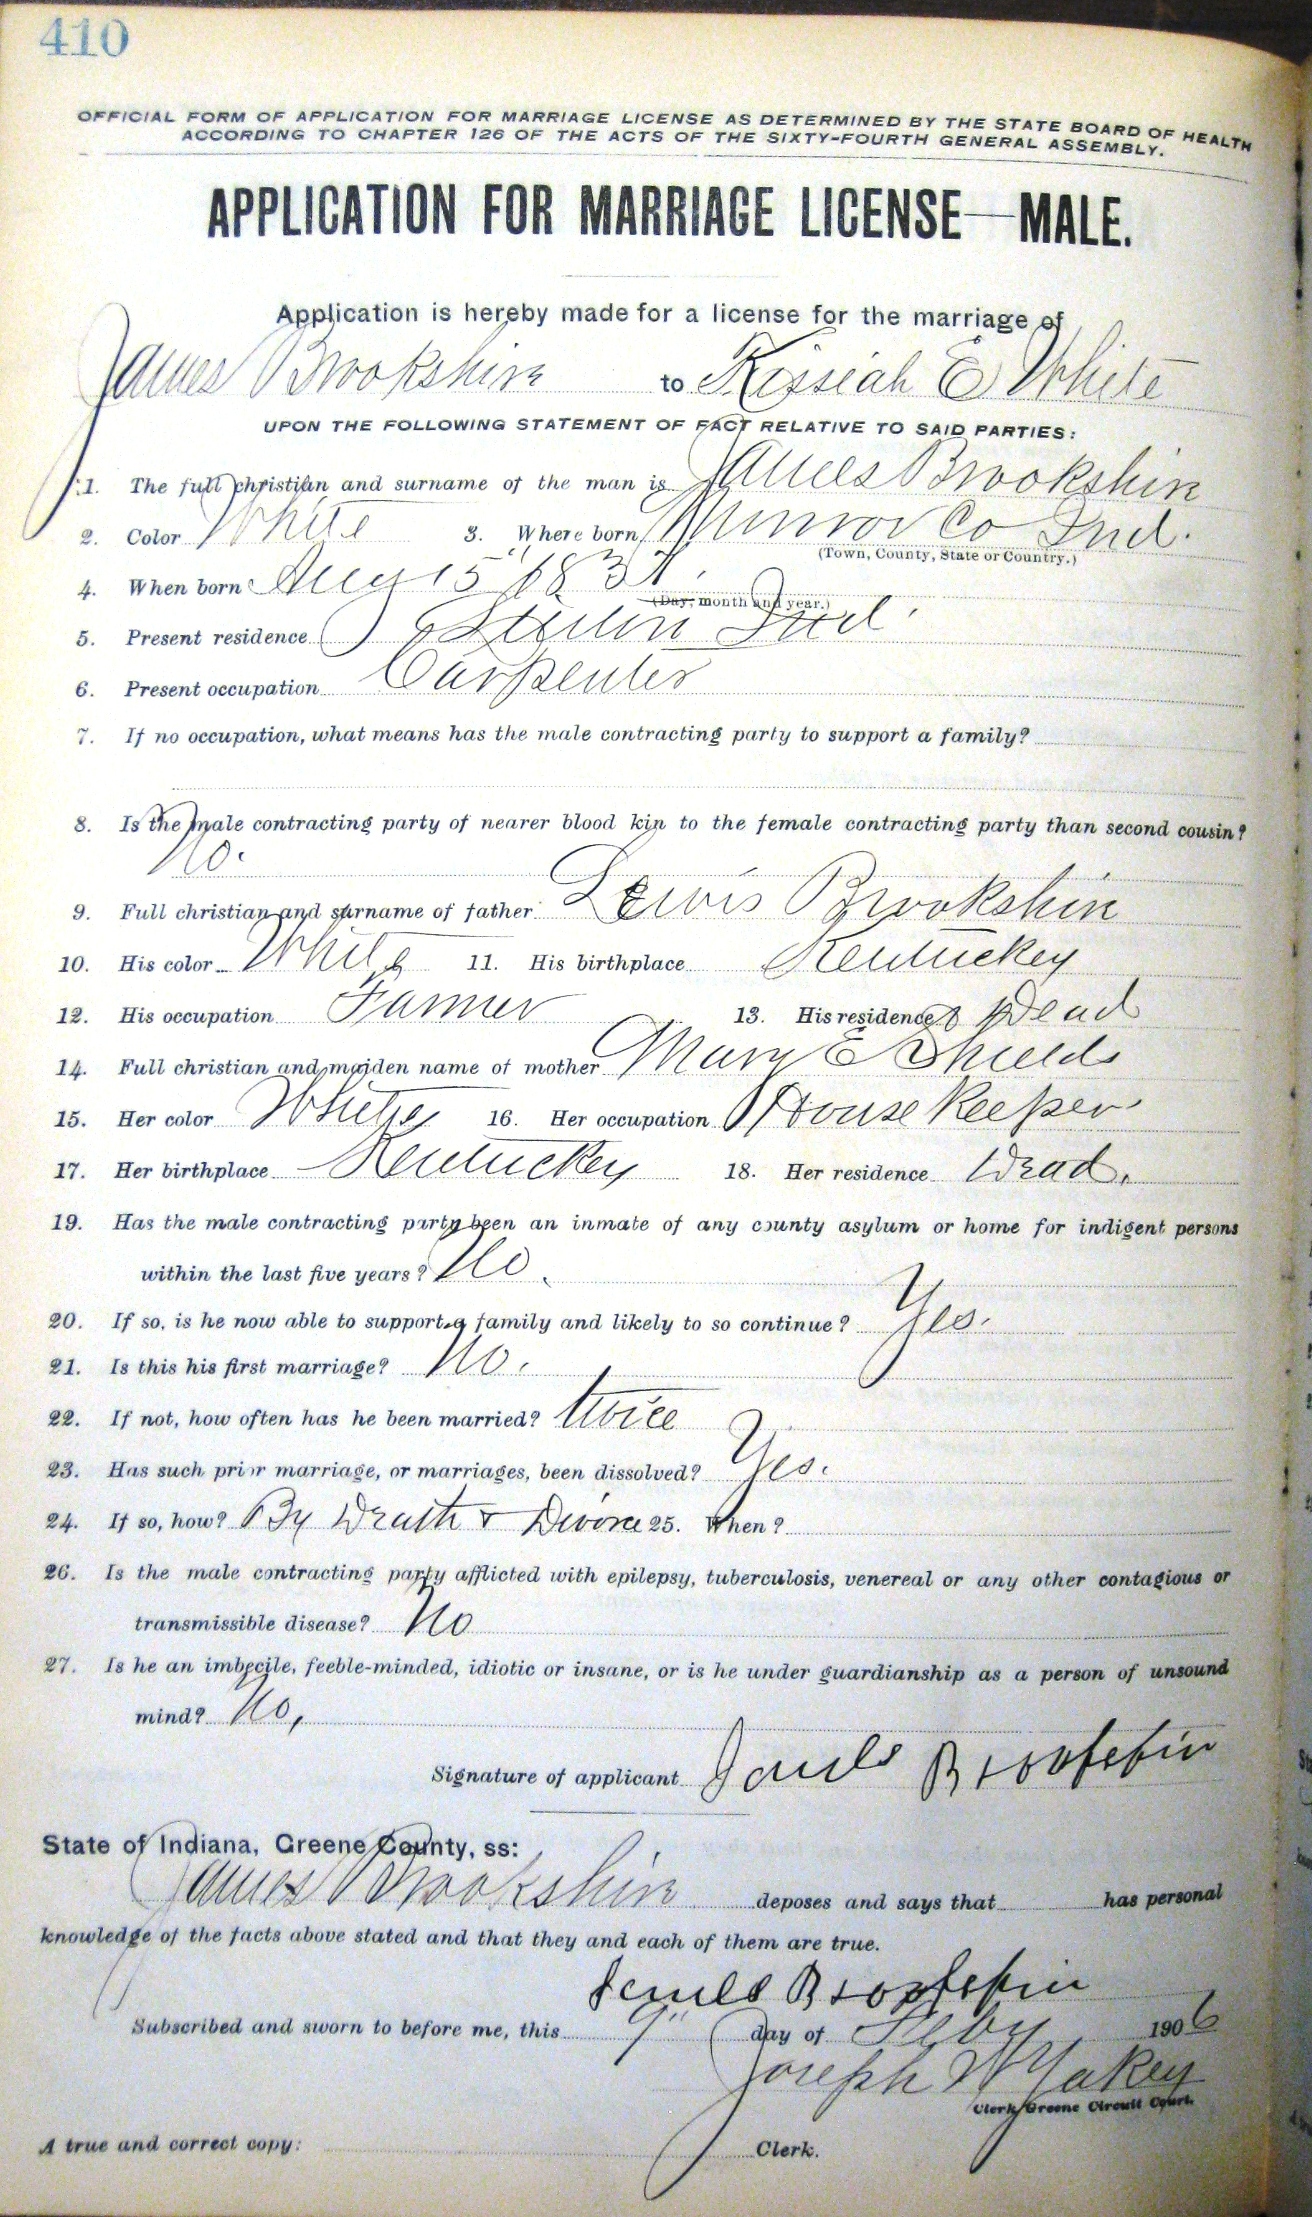 410
OFFICIAL FORM OF APPLICATION FOR MARRIAGE LICENSE AS DETERMINED BY THE STATE BOARD OF HEALTH
ACCORDING TO CHAPTER 126 OF THE ACTS OF THE SIXTY-FOURTH GENERAL ASSEMBLY.
APPLICATION FOR MARRIAGE LICENSE—MALE.
Application is hereby made for a license for the marriage of
James Brookshire to Kissiah E White
UPON THE FOLLOWING STATEMENT OF FACT RELATIVE TO SAID PARTIES:
1. The full christian and surname of the man is James Brookshire
2. Color White 3. Where born Munroe Co Ind.
(Town, County, State or Country.)
4. When born Aug 15" 183
(Day, month and year.)
5. Present residence Ind
6. Present occupation Carpenter
7. If no occupation, what means has the male contracting party to support a family?
8. Is the male contracting party of nearer blood kin to the female contracting party than second cousin?
No.
9. Full christian and surname of father Lewis Brookshire
10. His color White 11. His birthplace Kentuckey
12. His occupation Farmer 13. His residence Dead
14. Full christian and maiden name of mother Mary E Shields
15. Her color White 16. Her occupation House Keeper
17. Her birthplace Kentuckey 18. Her residence Dead.
19. Has the male contracting party been an inmate of any county asylum or home for indigent persons
within the last five years? No.
20. If so, is he now able to support a family and likely to so continue? Yes.
21. Is this his first marriage? No.
22. If not, how often has he been married? twice
23. Has such prior marriage, or marriages, been dissolved? Yes.
24. If so, how? By Death & Divorce 25. When?
26. Is the male contracting party afflicted with epilepsy, tuberculosis, venereal or any other contagious or
transmissible disease? No
27. Is he an imbecile, feeble-minded, idiotic or insane, or is he under guardianship as a person of unsound
mind? No,
Signature of applicant James Brookshire
State of Indiana, Greene County, ss:
James Brookshire deposes and says that has personal
knowledge of the facts above stated and that they and each of them are true.
James Brookshire
Subscribed and sworn to before me, this 9" day of Feby 1906
Joseph W Yakey
Clerk Greene Circuit Court.
A true and correct copy: Clerk.